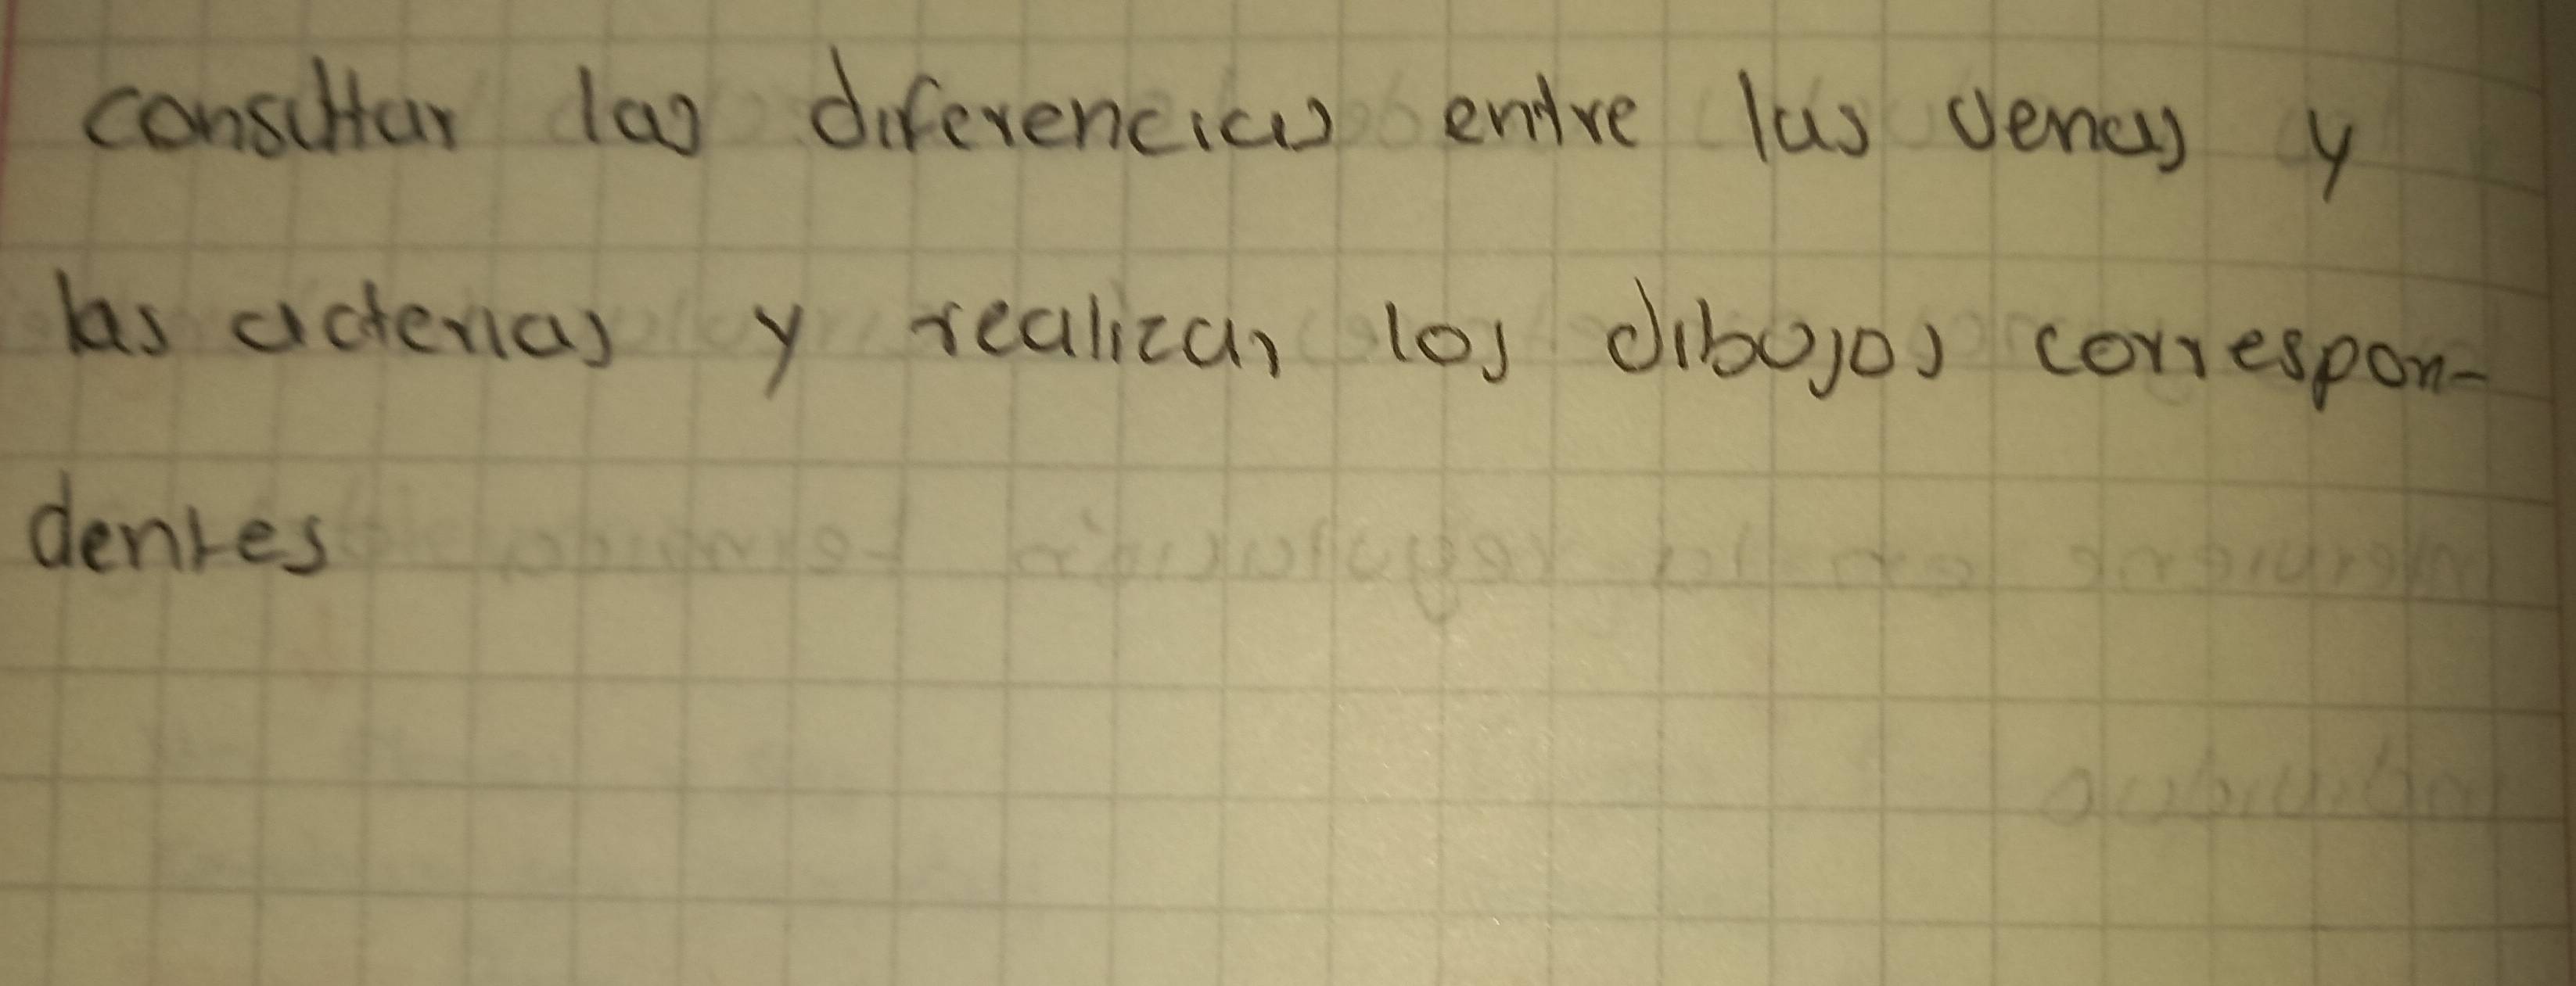 consultar las diferencias entre las venas y
las acterias y realizar los dibujos correspon-
dentes